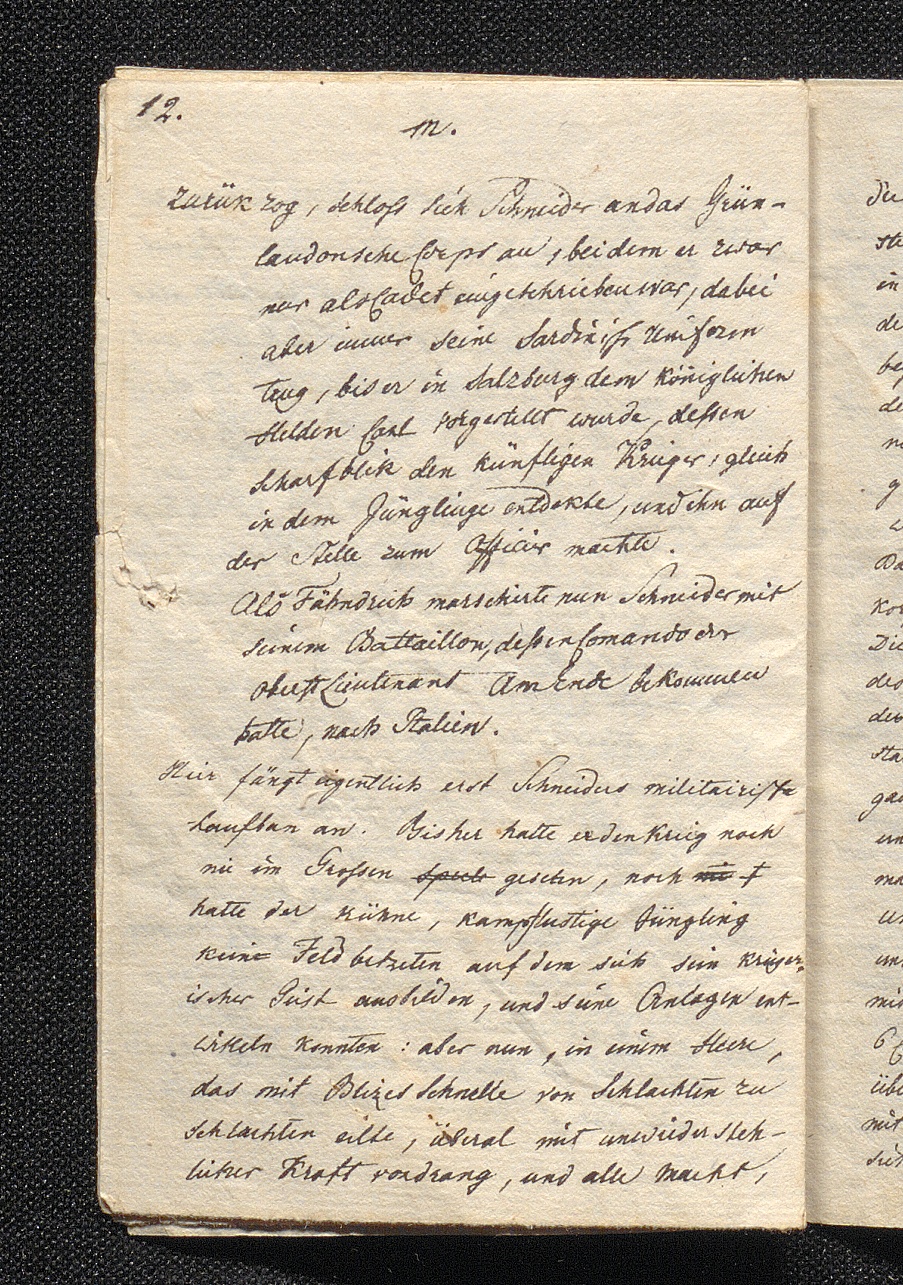 12.
m.
zurük zog, schloss sich Schneider an das Grün-
laudonsche Corps an, bei dem er zwar
nur als Cadet eingeschrieben war, dabei
aber immer seine Sardinisch Uniform
trug, bis er in Salzburg dem königlichen
Helden Carl vorgestellt wurde, dessen
scharfblik den künftigen Krieger, gleich
in dem Jünglinge entdekte, und ihn auf
der Stelle zum Officier machte.
Als Fähndrich marschirte nun Schneider mit
seinem Battaillon, dessen Comando der
Oberstlieutenant Am Ende bekommen
hatte, nach Italien.
Hier fängt eigentlich erst Schneiders militairische
Laufban an. Bisher hatte er den Krieg noch
nie im Grossen gesehen, noch
hatte der kühne, kampflustige Jüngling
kein Feld betreten auf dem sich sein krieger-
ischer Geist ausbilden, und seine Anlagen ent-
wikeln konnten: aber nun, in einem Heere,
das mit Blizes Schnelle von Schlachten zu
schlachten eilte, überal mit unwiedersteh-
licher Kraft vordrang, und alle Macht,